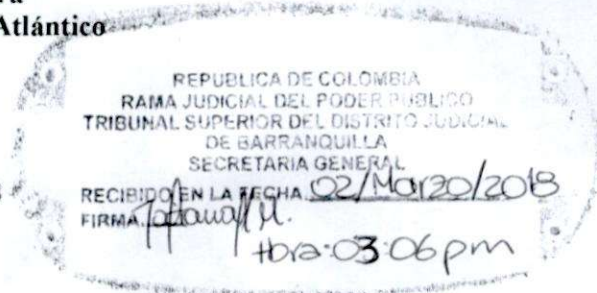 Atlántico
REPUBLICA DE COLOMBIA
RAMA JUDICIAL DEL PODER PUBLICO
TRIBUNAL SUPERIOR DEL DISTRITO JUDICIAL
DE BARRANQUILLA
SECRETARIA GENERAL
RECIBIDO EN LA FECHA 02/Marzo/2018
FIRMA
Hora: 03:06 pm